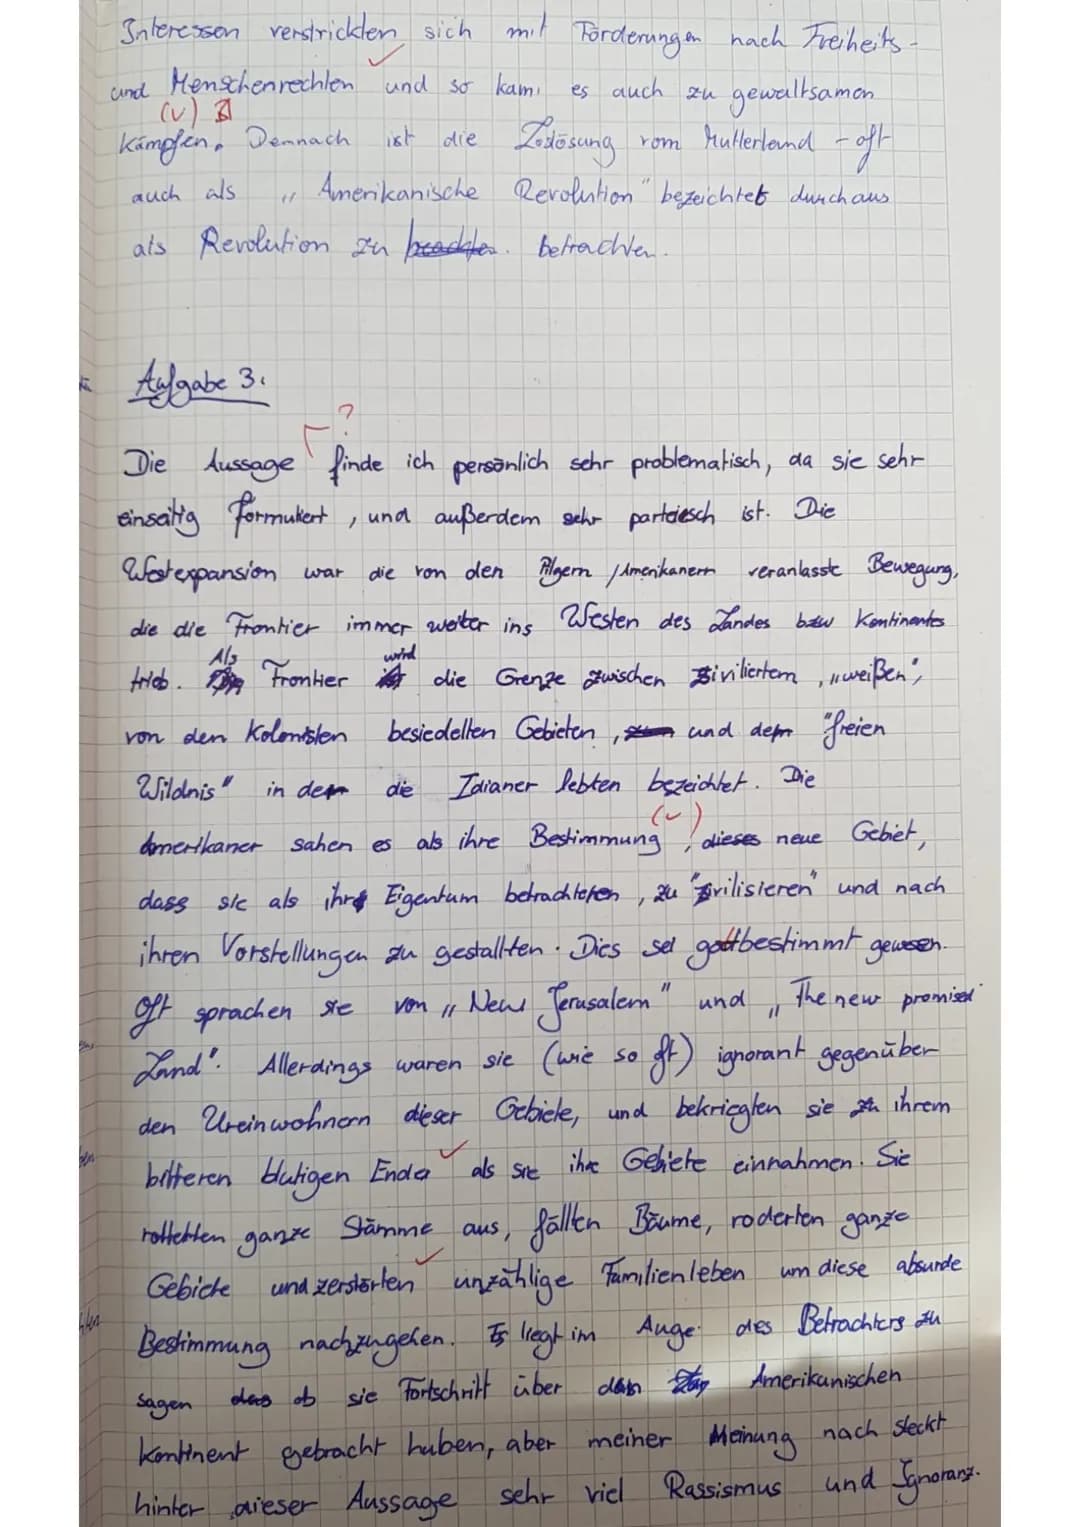 Interessen verstrickten sich mit Forderungen nach Freiheits-
und Menschenrechten und so kam, es auch zu gewaltsamen
(v)
Kämpfen. Dennoch ist die Loslösung vom Mutterland – oft
auch als „Amerikanische Revolution" bezeichtet durchaus
als Revolution zu betrachten.
Aufgabe 3.
?
Die Aussage finde ich persönlich sehr problematisch, da sie sehr
einseitig formuliert, und außerdem sehr parteiesch ist. Die
Westexpansion war die von den Pilgern / Amerikanern veranlasste Bewegung,
die die Frontier immer weiter ins Westen des Landes bzw Kontinentes
trieb. Als Frontier wird die Grenze zwischen ziviliertem, „weißen",
von den Kolonisten besiedelten Gebieten, und dem "freien
Wildnis" in dem die Idianer lebten bezeichtet. Die
(v)
Amerikaner sahen es als ihre Bestimmung, dieses neue Gebiet,
dass sie als ihr Eigentum betrachteten, zu "zivilisieren" und nach
ihren Vorstellungen zu gestallten. Dies sei gottbestimmt gewesen.
Oft sprachen sie von „New Jerusalem" und „The new promised
Land". Allerdings waren sie (wie so oft) ignorant gegenüber
den Ureinwohnern dieser Gebiete, und bekriegten sie zu ihrem
bitteren blutigen Ende als sie ihre Gebiete einnahmen. Sie
rotteten ganze Stämme aus, fällten Bäume, roderten ganze
Gebiete und zerstörten unzählige Familienleben um diese absurde
Bestimmung nachzugehen. Es liegt im Auge des Betrachters zu
sagen ob sie Fortschritt über den Amerikanischen
Kontinent gebracht haben, aber meiner Meinung nach steckt
hinter dieser Aussage sehr viel Rassismus und Ignoranz.